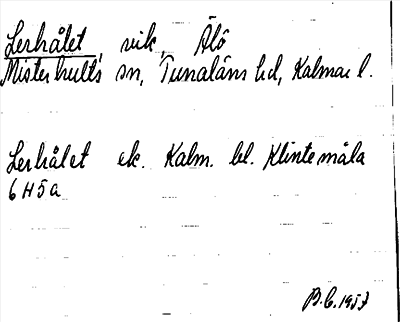 Lerhålet, vik, Älö
Misterhults sn, Tunaläns hd, Kalmar l.
Lerhålet ek. Kalm. bl. Klintemåla
6H5a
B.C. 1957